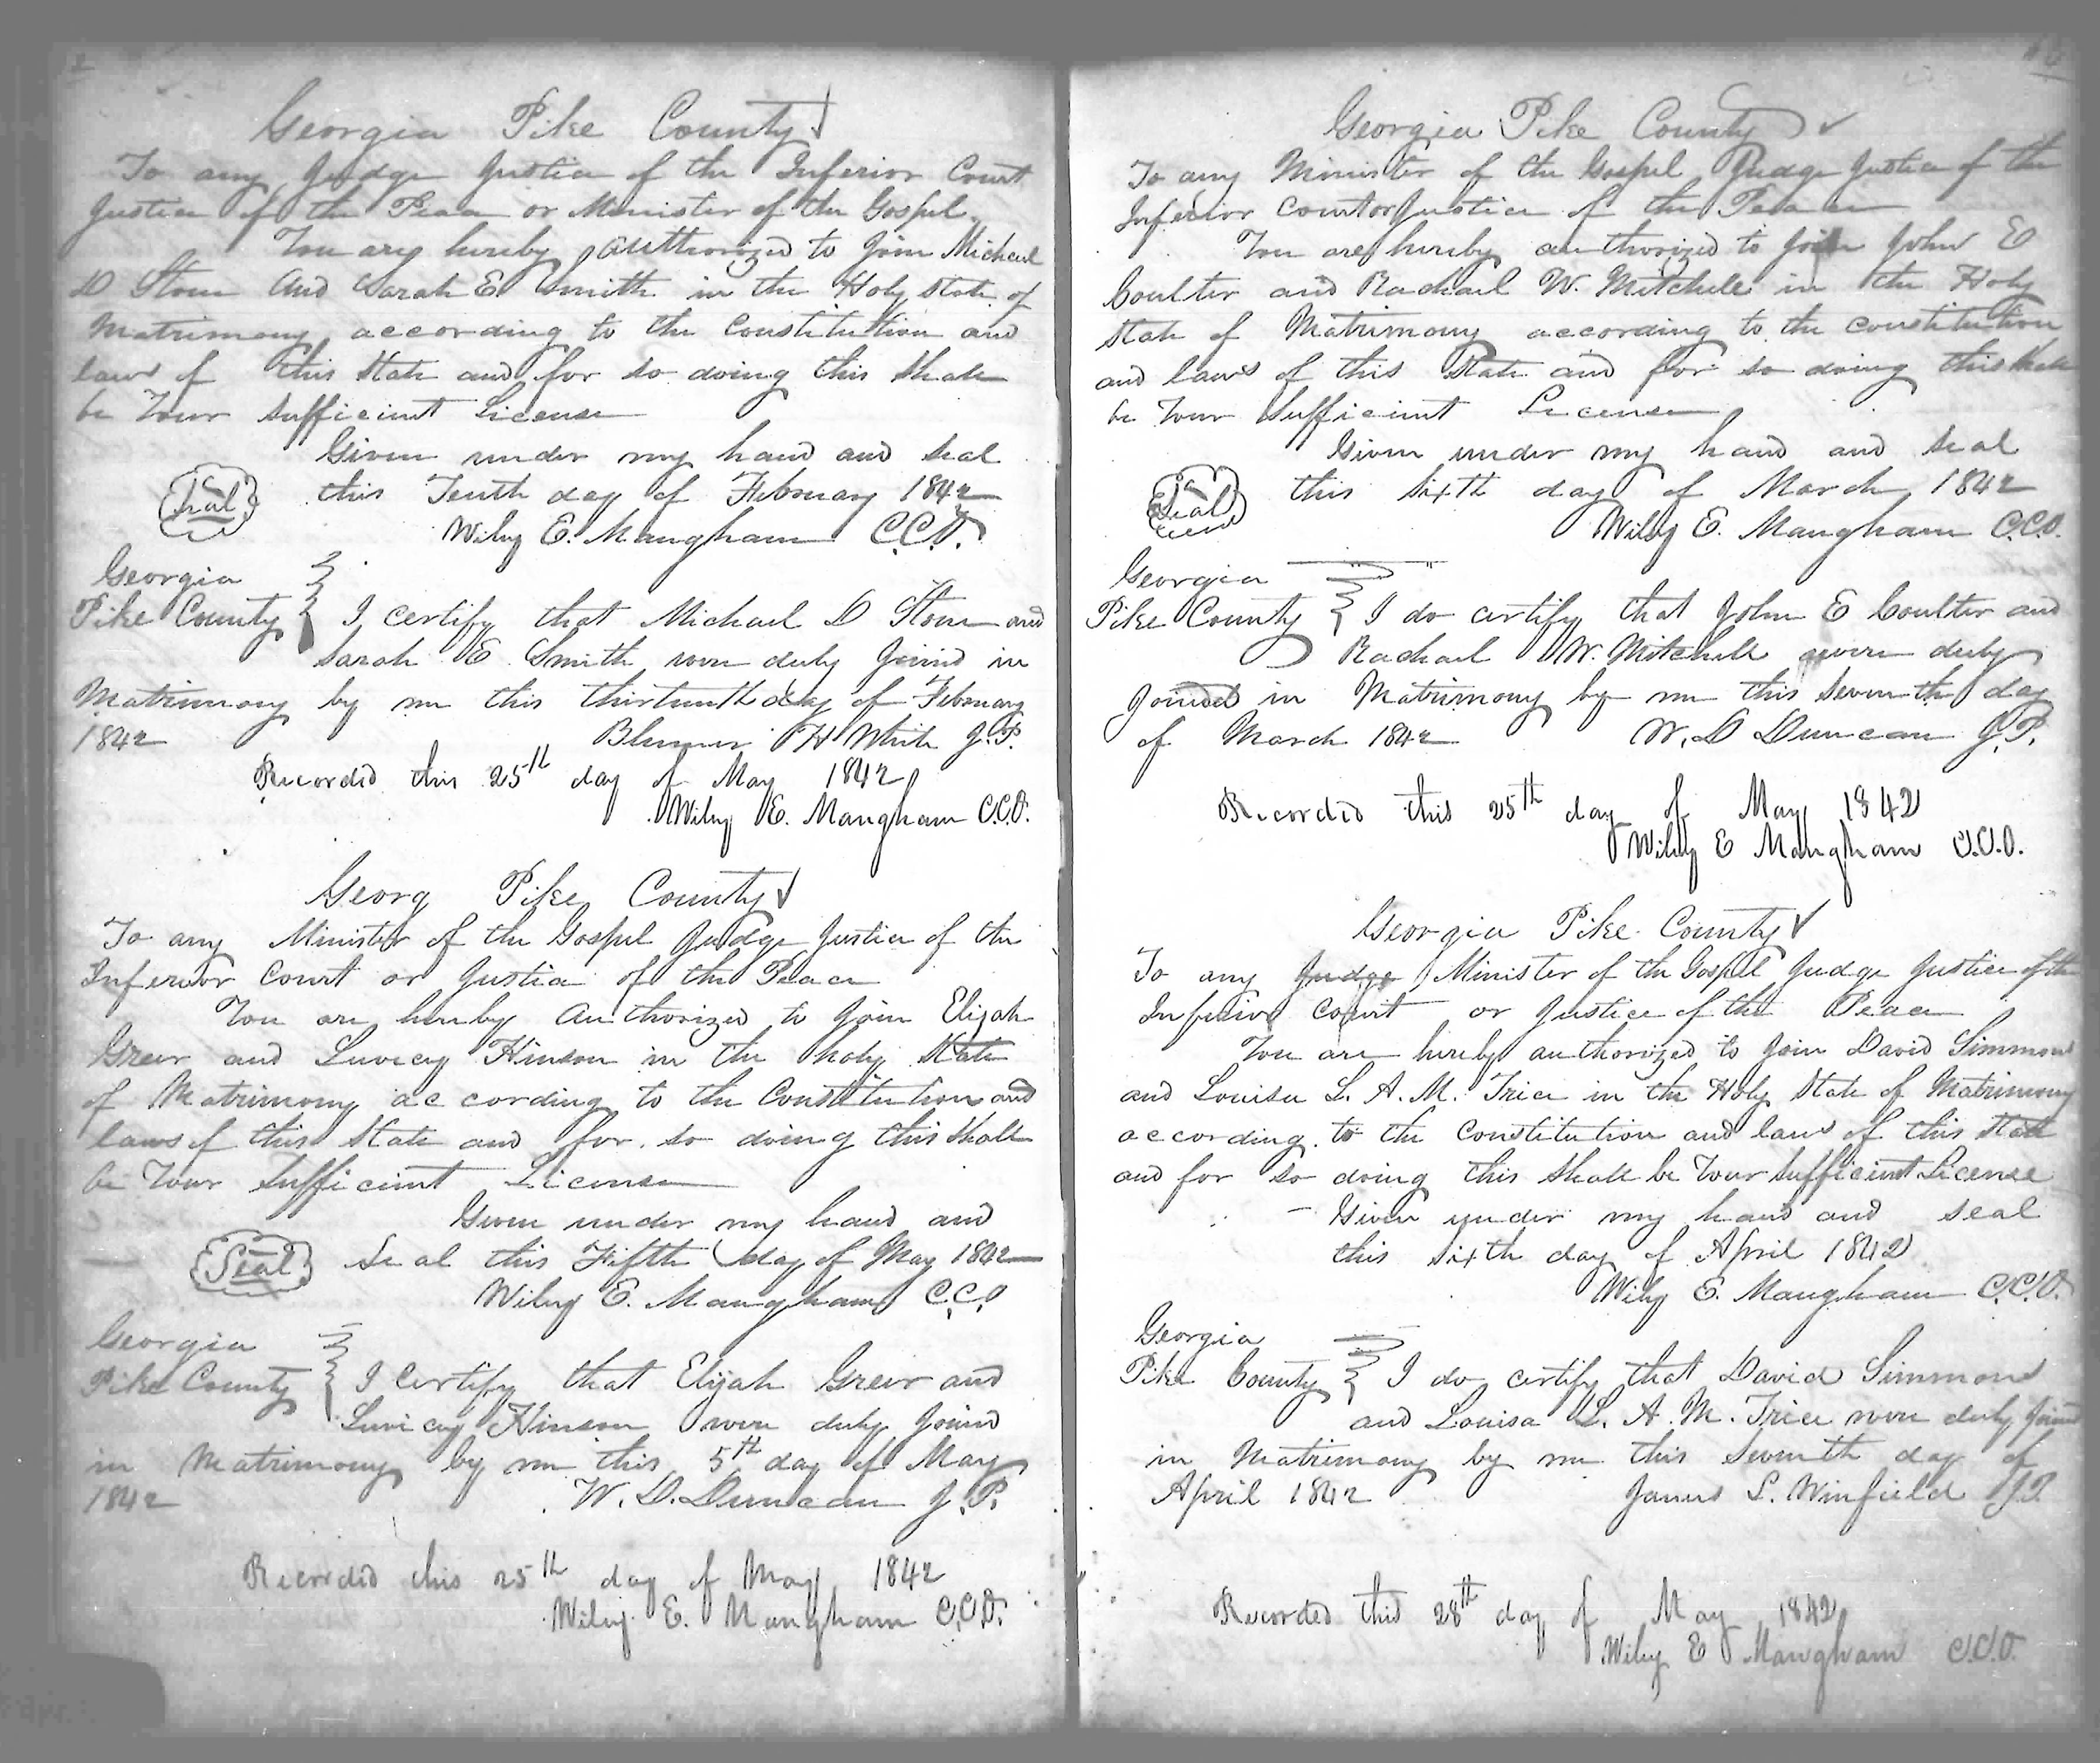 Georgia Pike County
To any Judge Justice of the Inferior Court
Justice of the Peace or Minister of the Gospel
You are hereby Authorized to Join Michael
D Stone And Sarah E Smith in the Holy State of
Matrimony according to the Constitution and
laws of this State and for so doing this Shall
be Your Sufficient License
Given under my hand and seal
Seal this Tenth day of February 1842
Wiley E. Mangham C.C.O.
Georgia
Pike County I certify that Michael D Stone and
Sarah E Smith were duly Joined in
Matrimony by me this thirteenth day of February
1842 H White J.P.
Recorded this 25th day of May 1842
Wiley E. Mangham C.C.O.
Georg Pike County
To any Minister of the Gospel Judge Justice of the
Inferior Court or Justice of the Peace
You are hereby Authorized to Join Elijah
Greer and Luvicey Hinson in the holy State
of Matrimony according to the Constitution and
laws of this State and for so doing this Shall
be Your Sufficient License
Given under my hand and
Seal Seal this Fifth day of May 1842
Wiley E. Mangham C.C.O
Georgia
Pike County I Certify that Elijah Greer and
Luvicey Hinson were duly Joined
in Matrimony by me this 5th day of May
1842 W. D. Duncan J.P.
Recorded this 25th day of May 1842
Wiley E. Mangham C.C.O.
Georgia Pike County
To any Minister of the Gospel Judge Justice of the
Inferior Court or Justice of the Peace
You are hereby authorized to Join John E
Coulter and Rachael W. Mitchell in the Holy
State of Matrimony according to the constitution
and laws of this State and for so doing this Shall
be Your Sufficient License
Given under my hand and seal
Seal this Sixth day of March 1842
Wiley E. Mangham C.C.O.
Georgia
Pike County I do certify that John E Coulter and
Rachael W. Mitchell were duly
Joined in Matrimony by me this Seventh day
of March 1842 W. D Duncan J.P.
Recorded this 25th day of May 1842
Wiley E Mangham C.C.O.
Georgia Pike County
To any Judge Minister of the Gospel Judge Justice of the
Inferior Court or Justice of the Peace
You are hereby authorized to Join David Simmons
and Louisa L. A. M. Trice in the Holy State of Matrimony
according to the Constitution and laws of this State
and for so doing this Shall be Your Sufficient License
Given under my hand and seal
this Sixth day of April 1842
Wiley E. Mangham C.C.O.
Georgia
Pike County I do certify that David Simmons
and Louisa L. A. M. Trice were duly Joined
in Matrimony by me this Seventh day of
April 1842 James S. Winfield J.P.
Recorded this 28th day of May 1842
Wiley E Mangham C.C.O.